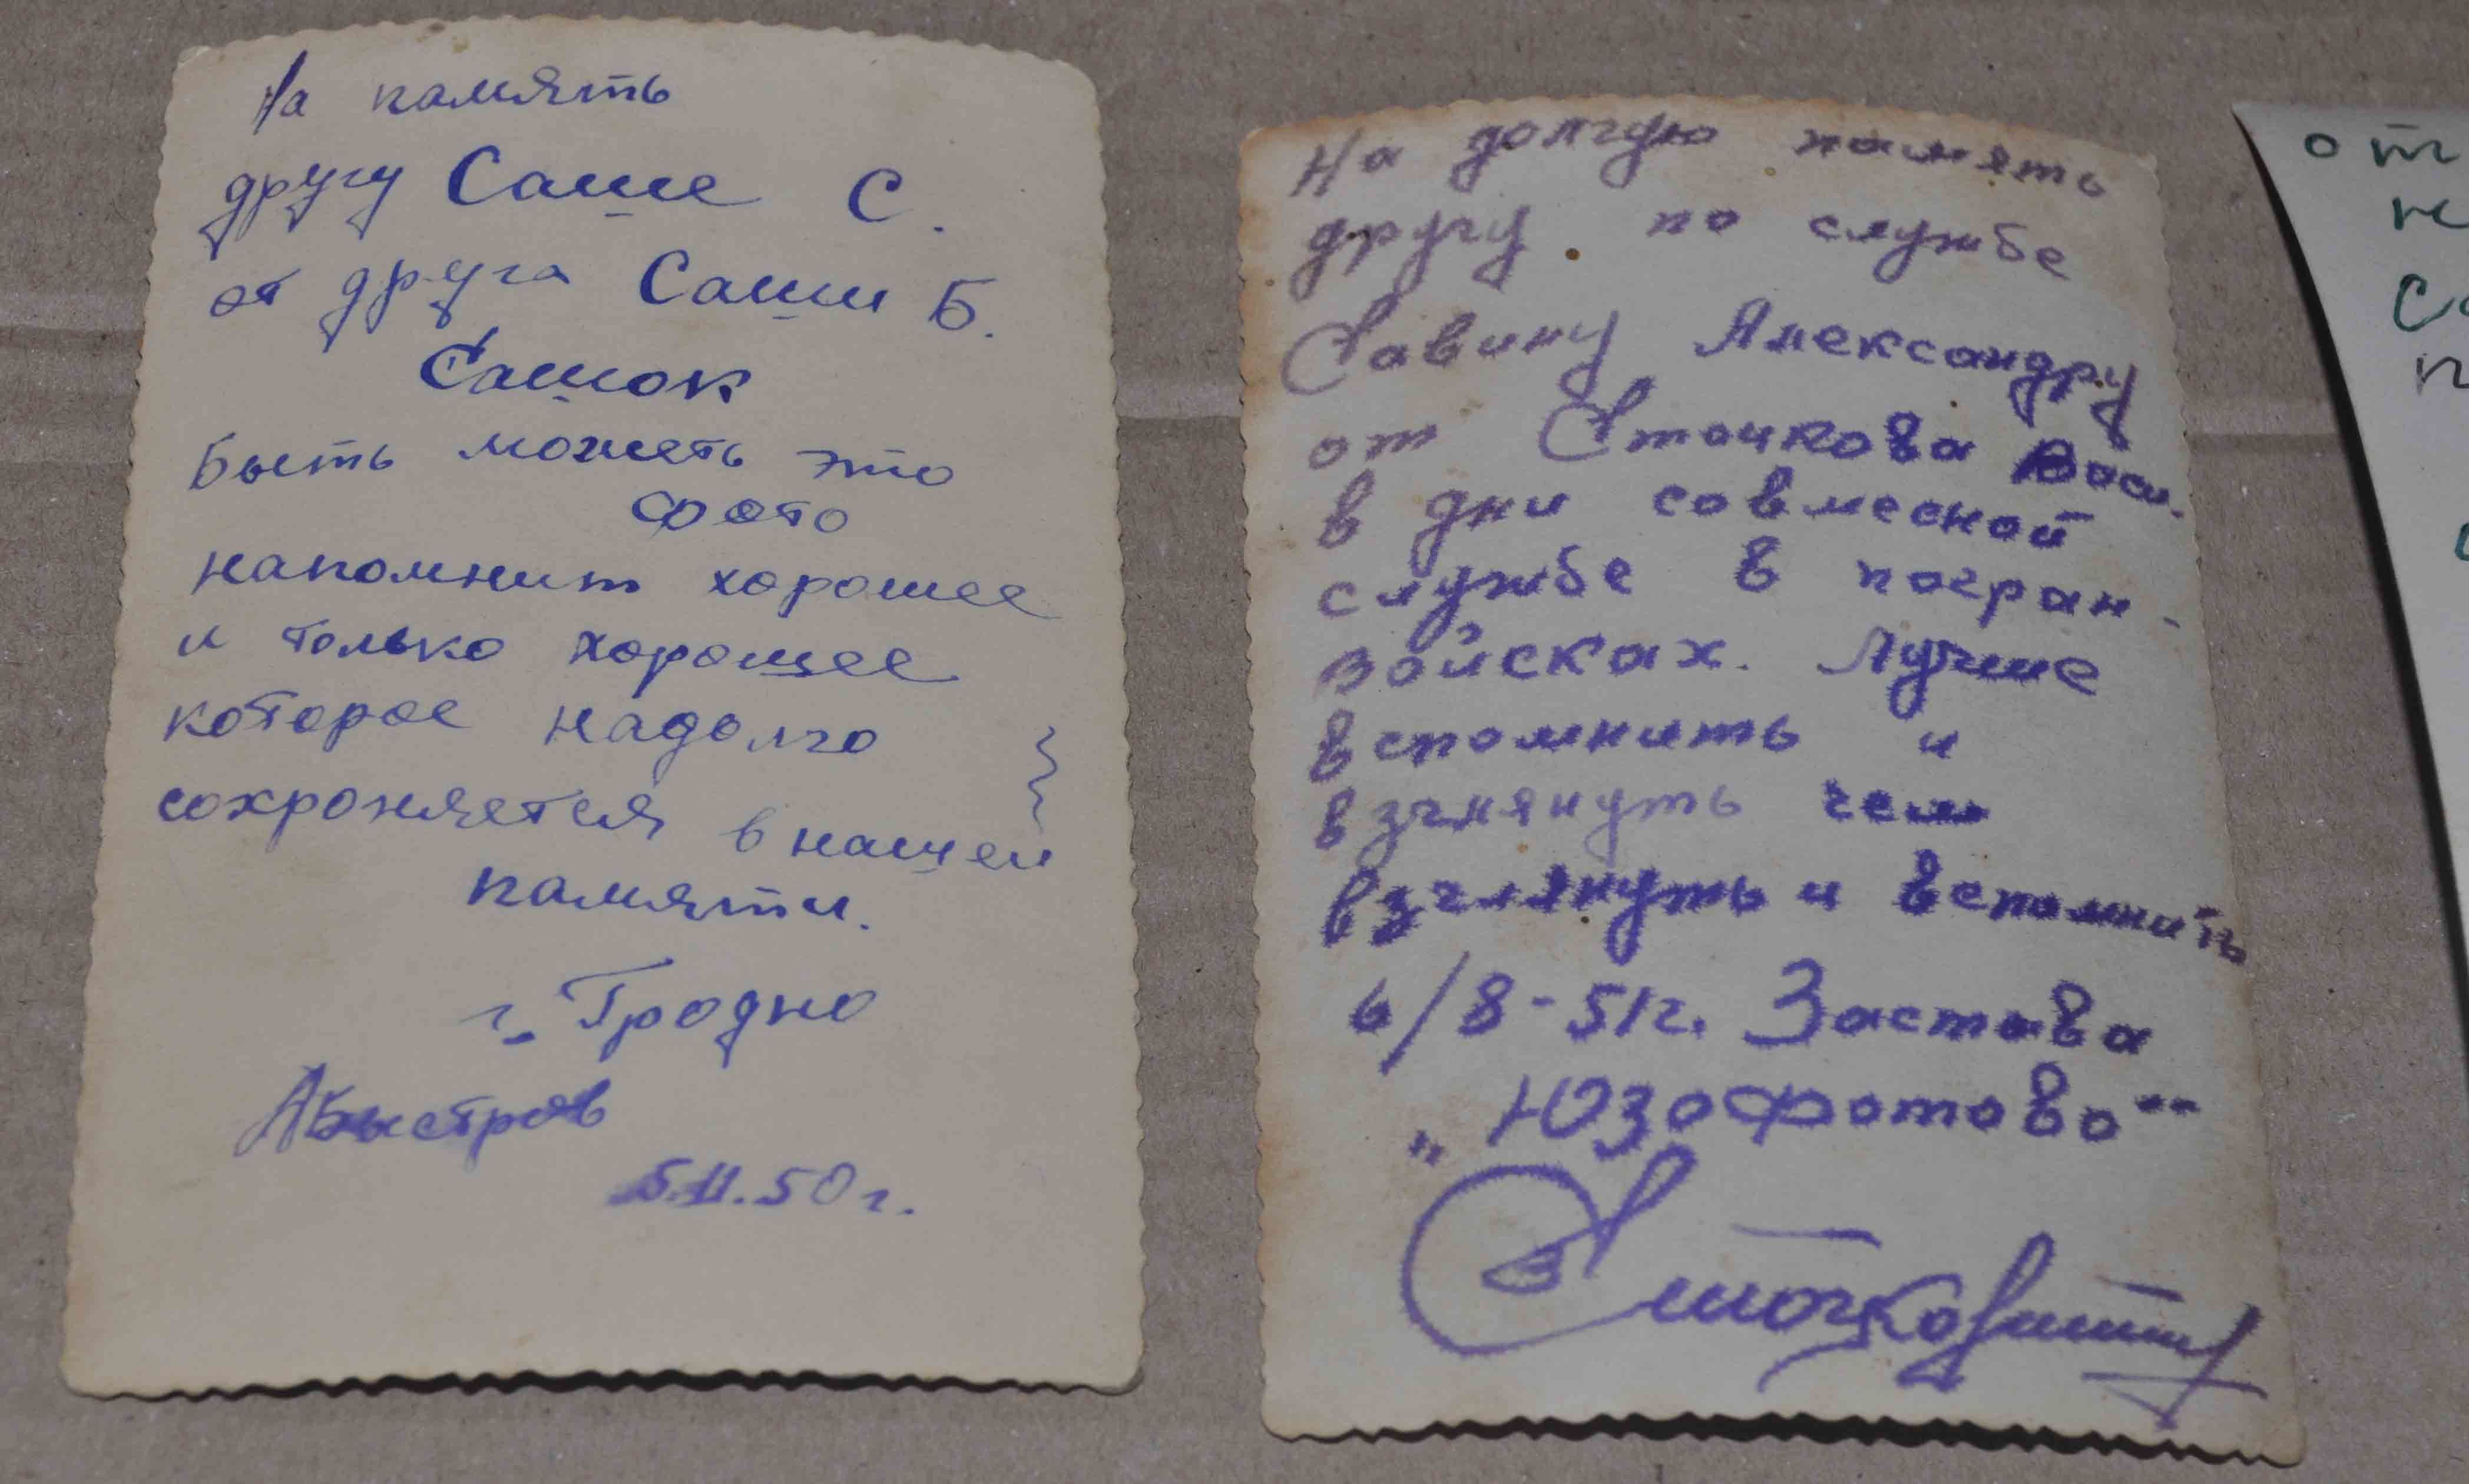 На память
другу Саше С.
от друга Саши Б.
Сашок
Быть можеть это
фото
напомнит хорошее
и только хорошее
которое надолго
сохроняется в нашей
памяти.
г. Гродно
АБыстров
5.11.50 г.
На долгую память
другу по службе
Савину Александру
от Сточкова Васи.
в дни совмесной
службе в погран-
войсках. Лучше
вспомнить и
взглянуть чем
взглянуть и вспомнить
6/8-51г. Застава
„Юзофотово"
от
не